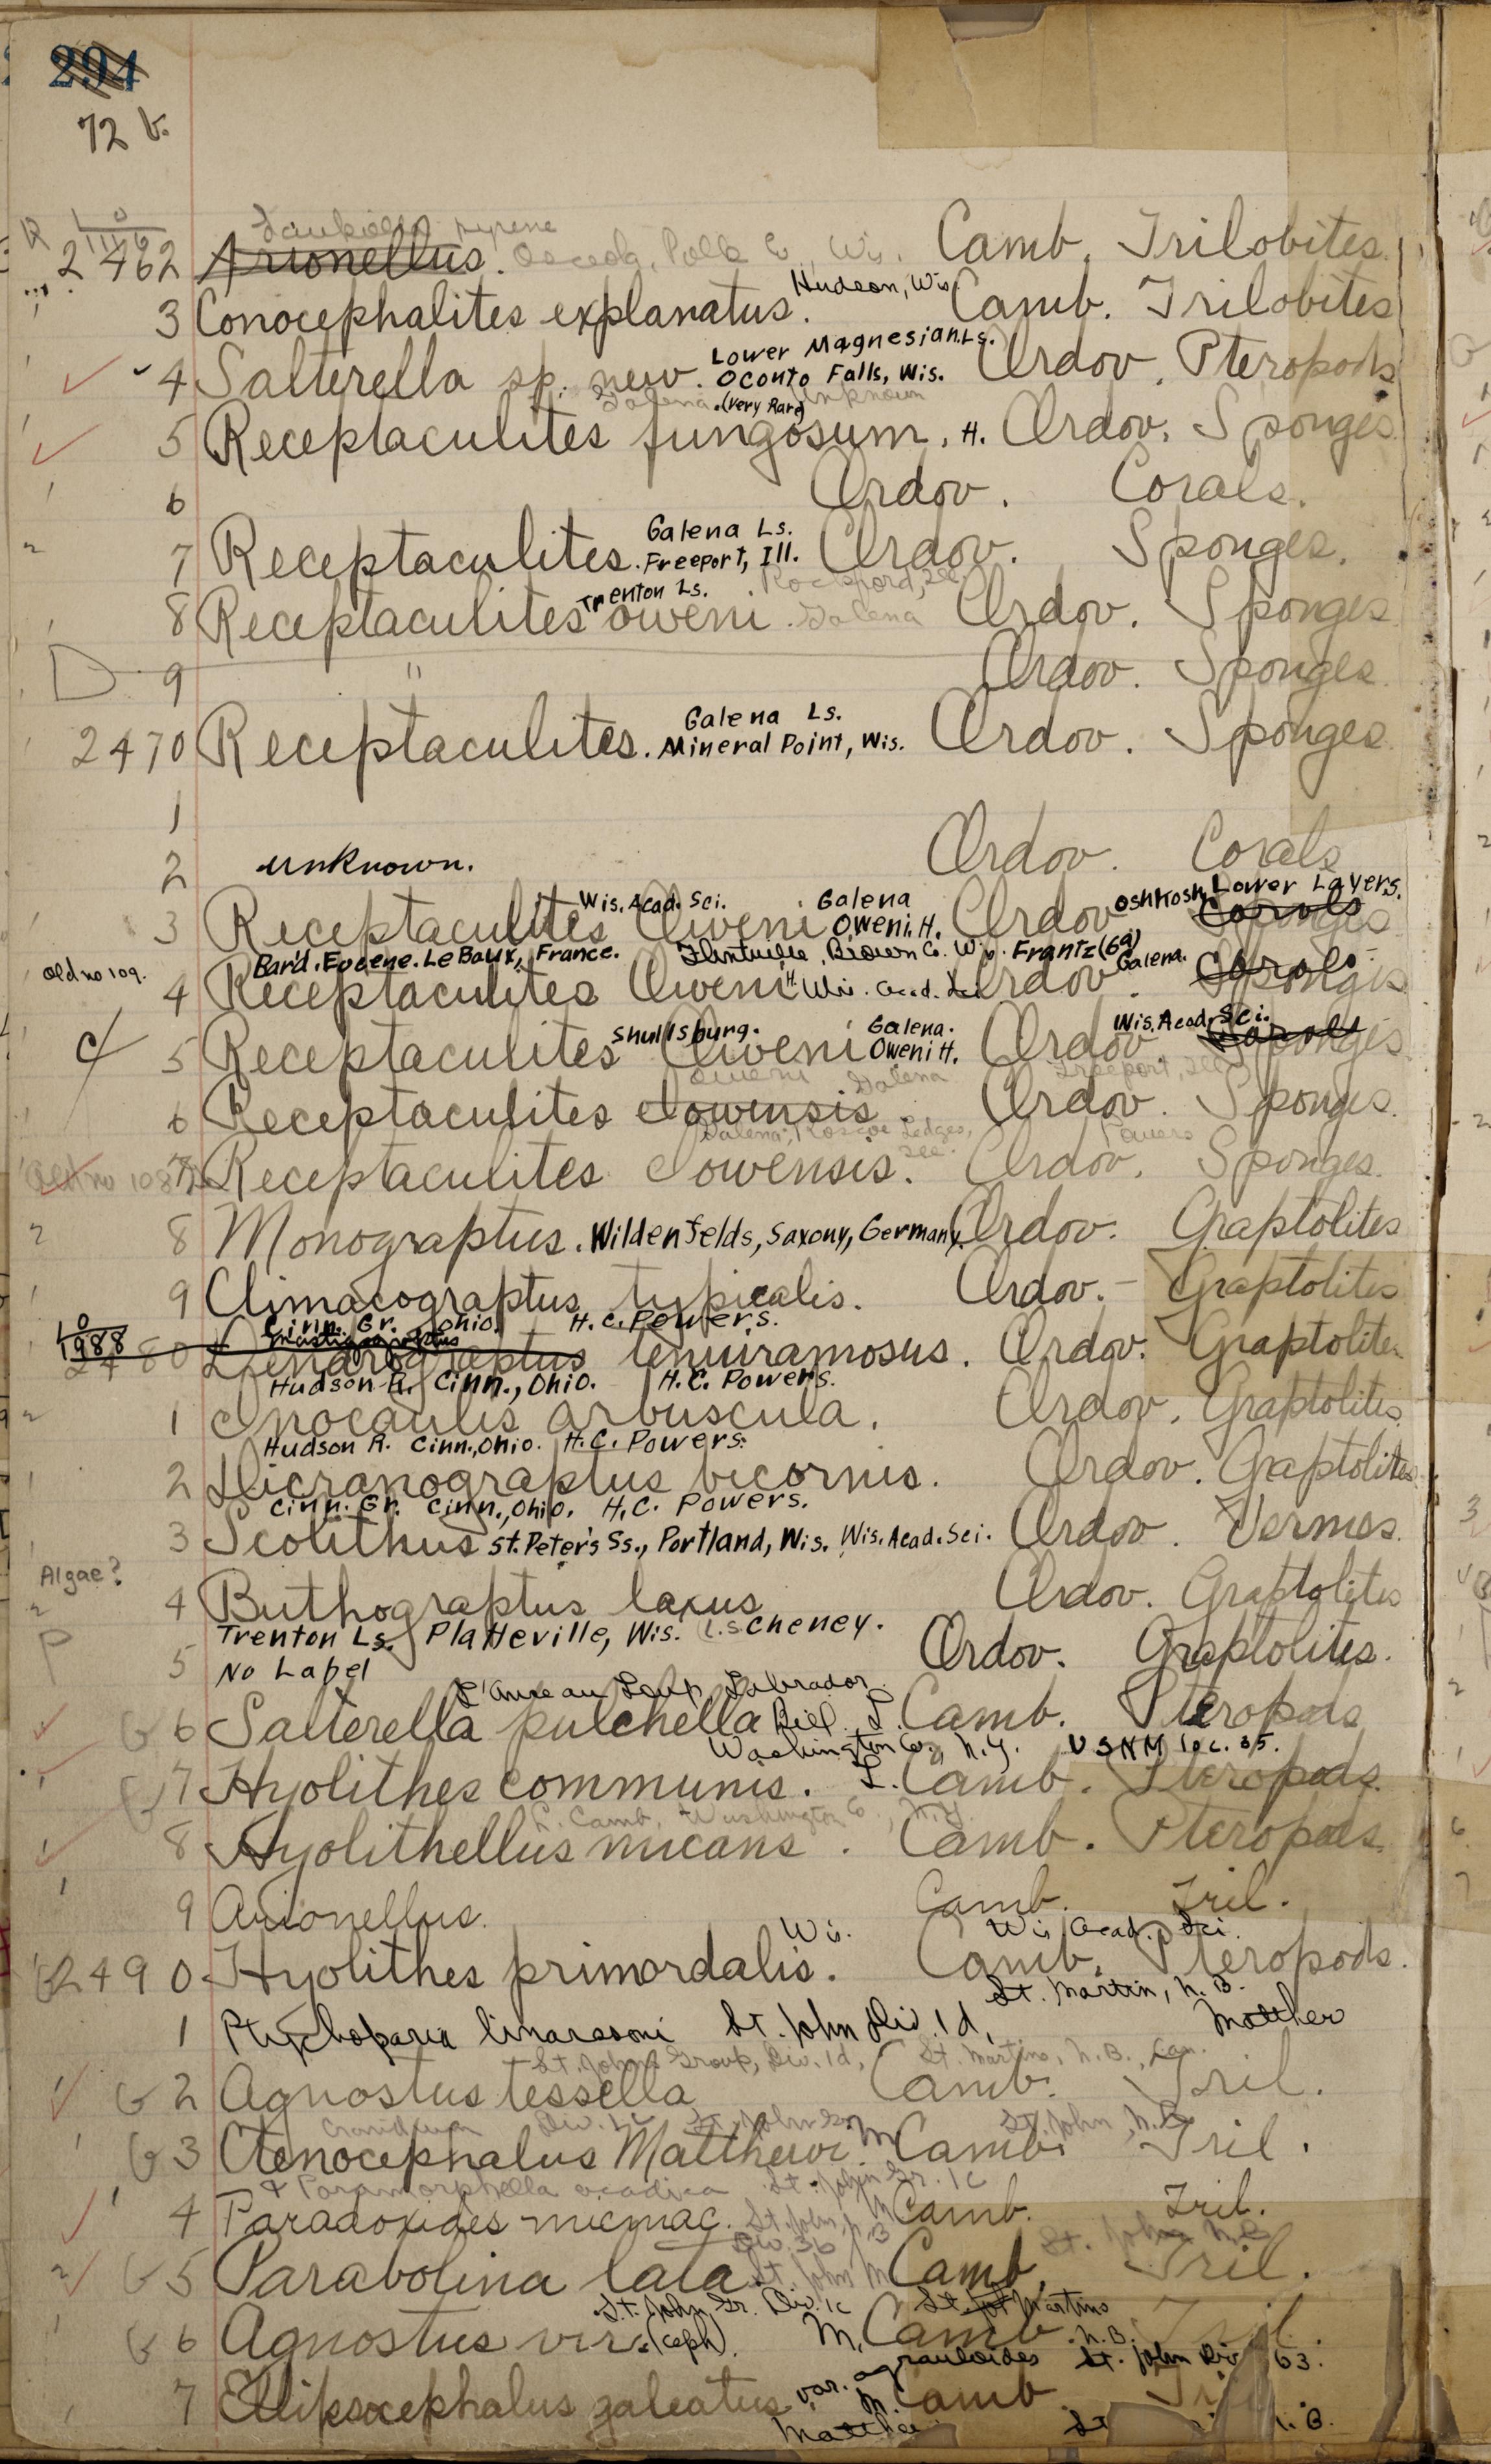 294
72 b.
Saukiella pyrene
2462 Arionellus. Osceola, Polk Co., Wis. Camb. Trilobites.
3 Conocephalites explanatus. Hudson, Wis. Camb. Trilobites
Lower Magnesian Ls.
4 Salterella sp. new. Oconto Falls, Wis. Ordov. Pteropods
Galena. (Very Rare) Unknown
5 Receptaculites fungosum. H. Ordov. Sponges
6 Ordov. Corals.
Galena Ls.
7 Receptaculites. Freeport, Ill. Ordov. Sponges.
Trenton Ls. Rockford, Ill
8 Receptaculites oweni. Galena Ordov. Sponges
D 9 " Ordov. Sponges.
Galena Ls.
2470 Receptaculites. Mineral Point, Wis. Ordov. Sponges
1
2 unknown. Ordov. Corals
Wis. Acad. Sci. Galena Oshkosh, Lower Layers.
3 Receptaculites Oweni Oweni. H. Ordov Corals Sponges
Bar'd. Eugene. Le Baux, France. Flintville, Brown Co. Wis. Frantz (6a) Galena.
Old no 109. 4 Receptaculites Oweni H. Wis. Acad. Sci Ordov. Corals Sponges
Shullsburg. Galena. Wis. Acad. Sci.
5 Receptaculites Oweni Oweni H. Ordov. Corals Sponges
oweni Galena Freeport, Ill
6 Receptaculites elowensis. Ordov. Sponges.
Galena, Roscoe Ledges, Ill. Powers
Old no 108 7 Receptaculites Iowensis. Ordov. Sponges.
8 Monograptus. Wildenfelds, Saxony, Germany. Ordov. Graptolites
9 Climacograptus typicalis. Ordov. - Graptolites
Cinn. Gr. Ohio. H. C. Powers.
1988 Mastigograptus
2480 Dendrograptus tenuiramosus. Ordov. Graptolites
Hudson R. Cinn., Ohio. H. C. Powers.
1 Inocaulis arbuscula. Ordov. Graptolites
Hudson R. Cinn., Ohio. H. C. Powers.
2 Dicranograptus bicornis. Ordov. Graptolites
Cinn. Gr. Cinn., Ohio. H. C. Powers.
3 Scolithus St. Peter's Ss., Portland, Wis. Wis. Acad. Sci. Ordov. Vermes.
Algae?
4 Buthograptus laxus Ordov. Graptolites
Trenton Ls. Platteville, Wis. L.S. Cheney.
P 5 No Label Ordov. Graptolites.
L'Anse au Loup Labrador
6 Salterella pulchella Bill. L. Camb. Pteropods
Washington Co., N.Y. USNM loc. 35.
7 Hyolithes communis. L. Camb. Pteropods.
L. Camb. Washington Co., N.Y.
8 Hyolithellus micans. Camb. Pteropods
9 Arionellus. Camb. Tril.
Wis. Wis Acad. Sci.
2490 Hyolithes primordalis. Camb. Pteropods.
St. Martin, N.B.
1 Ptychoparia linarssoni St. John Div. 1d, Matthew
St. Johns Group, Div. 1d, St. Martins, N.B., Can.
2 Agnostus tessella Camb. Tril.
Cranidium Div. 1c St. John Gr. St. John, N.B.
3 Ctenocephalus Matthewi M. Camb. Tril.
& Paramorphella acadica St. John Gr. 1c
4 Paradoxides micmac. St. John, N.B M Camb. Tril.
Div. 3b St. John N.B
5 Parabolina lata. St. John M Camb. Tril.
St. John Gr. Div. 1c St. Martins
6 Agnostus vir. (ceph). M. Camb. N.B. Tril.
var. agrauloides St. John Div 63.
7 Ellipsocephalus galeatus M. Camb Tril.
Matthew St N.B.